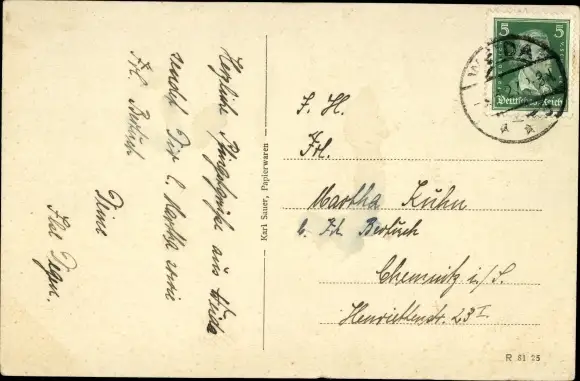 Herzliche Pfingstgrüße aus Weida
sendet Dir l. Martha sowie
Frl. Bertusch
Deine
Karl Sauer, Papierwaren
5 5
Deutsches Reich
WEIDA
F. H.
Frl.
Martha Kuhn
b. Fr. Bertusch
Chemnitz i/S.
Henriettenstr. 23 I
R 81 25